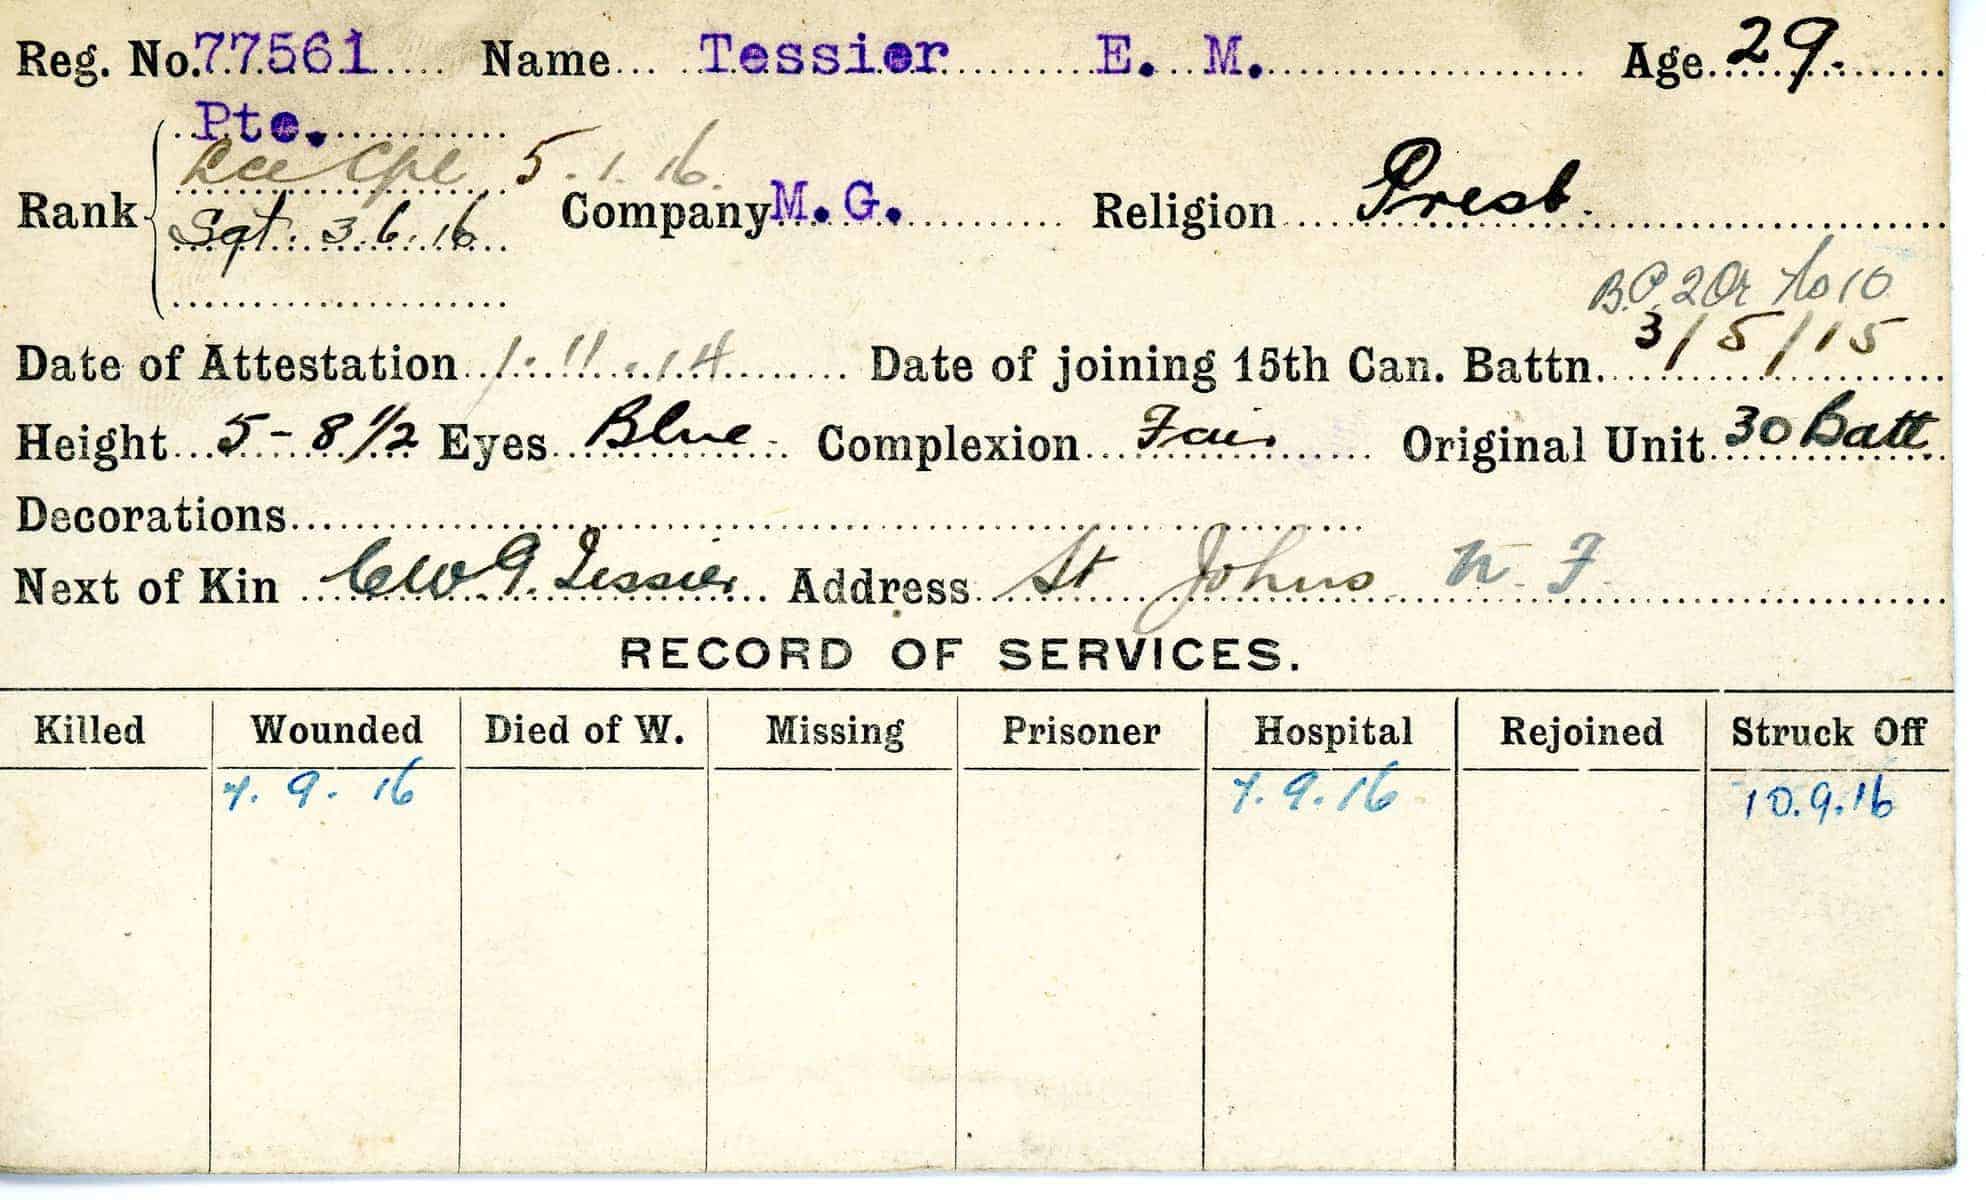 Reg. No. 77561 Name Tessier E. M. Age 29.
Pte.
Lce Cpl 5.1.16.
Rank Sgt. 3.6.16 Company M.G. Religion Presb.
B.P. 2 Or No 10
Date of Attestation 1.11.14 Date of joining 15th Can. Battn. 3/5/15
Height 5-8 1/2 Eyes Blue Complexion Fair Original Unit 30 Batt.
Decorations
Next of Kin C W G. Tessier Address St Johns N. F.
RECORD OF SERVICES.
Killed Wounded Died of W. Missing Prisoner Hospital Rejoined Struck Off
7. 9. 16 7.9.16 10.9.16